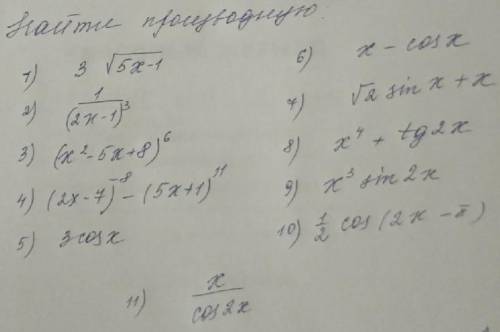 Найти производную.
1) 3 √(5x-1)
2) 1/(2x-1)³
3) (x²-5x+8)⁶
4) (2x-7)⁻⁸ - (5x+1)¹¹
5) 3cosx
6) x - cosx
7) √2 sin x + x
8) x⁴ + tg2x
9) x³ sin 2x
10) 1/2 cos(2x - π)
11) x/cos2x